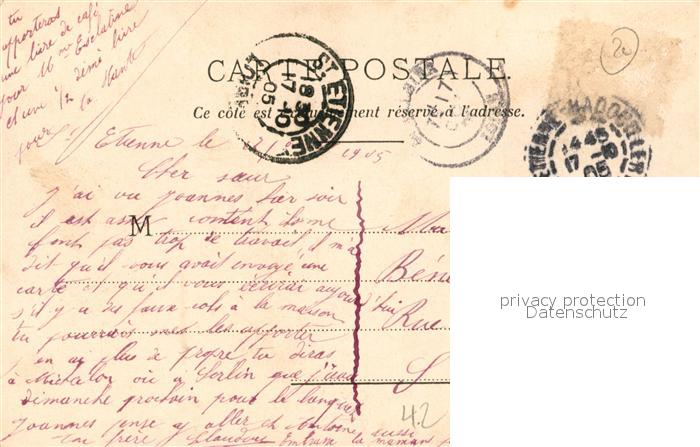 tu
apporteras
une livre de café
pour Mme Esclatine
et une 1/2 demi livre
pour la
2c
CARTE POSTALE.
Ce côté est exclusivement réservé à l'adresse.
St ETIENNE
18 30
17 -10
05
14 45
17 -10
05
Etienne le 1905
Cher sœur
J'ai vu Joannes hier soir
il est assez content lome
font pas trop de travail il m'a
dit qu'il vous avait envoyé une
carte et qu'il vous écrirai aujourd'hui
s'il y a des faux cols à la maison
tu pourrais me les apporter
j'en ai plus de propre tu diras
à ou à Sorlin que j'
dimanche prochain pour le
Joannes pense y aller et Antoine aussi
ton frère Claudius Embrasse la maman
M
Ma
Béné
Rue
S
42
privacy protection
Datenschutz